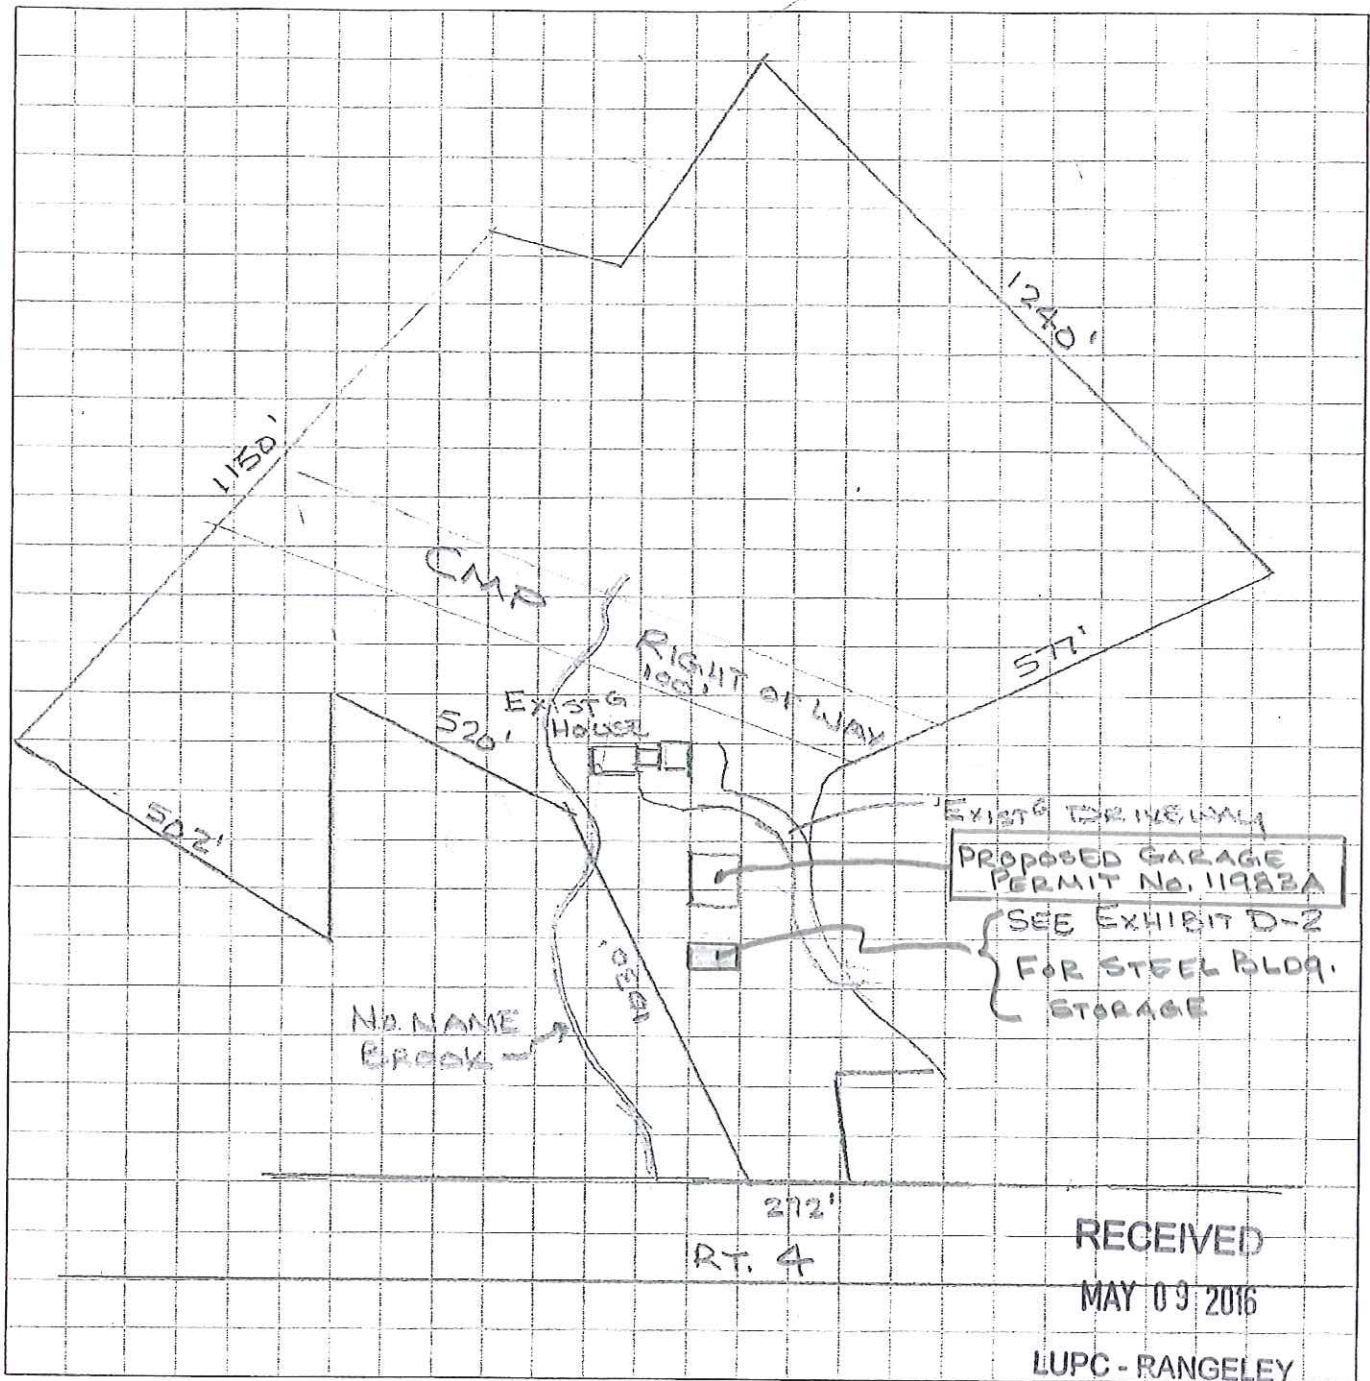 1240'
1150'
CMP
RIGHT OF WAY
100'
577'
EXIST'G
HOUSE
520'
502'
EXIST'G DRIVEWAY
PROPOSED GARAGE
PERMIT No. 11983A
SEE EXHIBIT D-2
FOR STEEL BLDG.
STORAGE
NO NAME
BROOK
272'
RT. 4
RECEIVED
MAY 09 2016
LUPC - RANGELEY